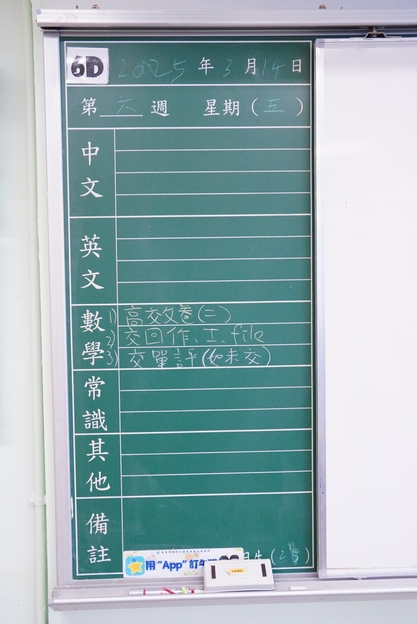 6D 2025 年 3 月 14 日
第 六 週 星期 ( 五 )
中文
英文
數學
1) 高效卷(二)
2) 交回作、工、file
3) 交單評(如未交)
常識
其他
備註
用 "App" 訂
(25)